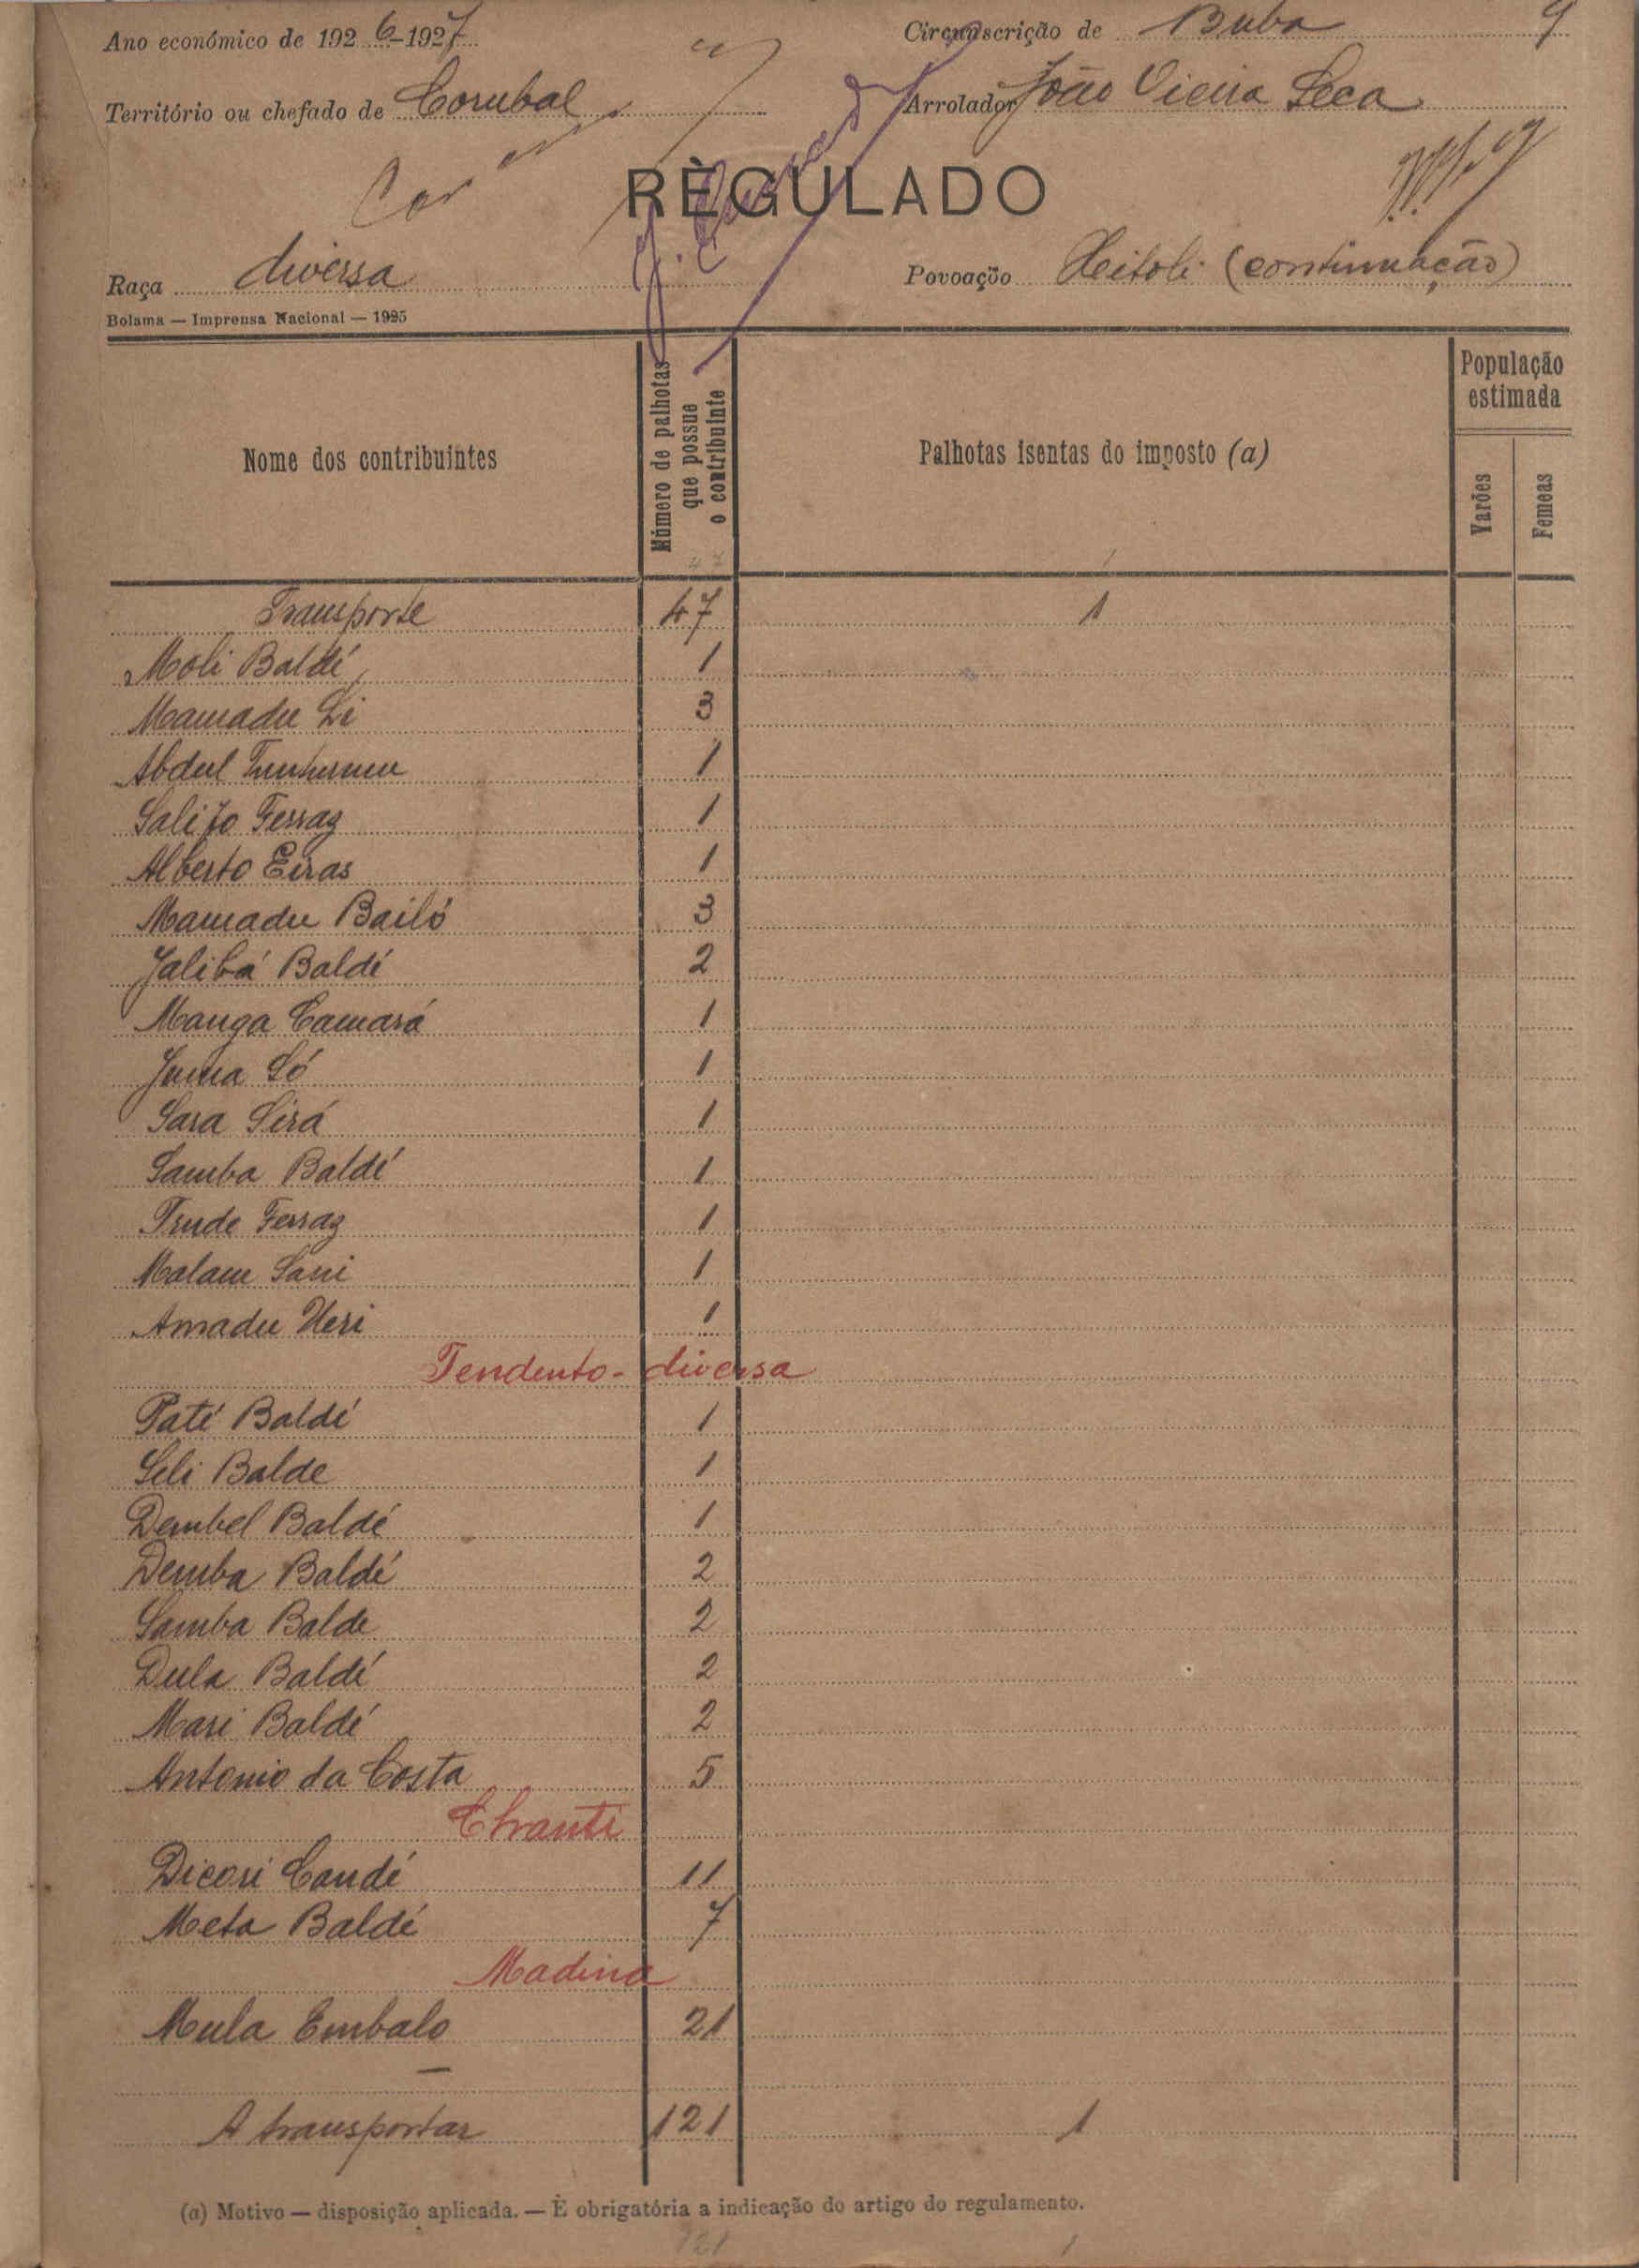 Ano económico de 1926-1927
Circunscrição de Buba 9
Território ou chefado de Corubal
Arrolador João Vieira Seca
RÈGULADO
Raça diversa
Povoação Xeitoli (continuação)
Bolama — Imprensa Nacional — 1925
Nome dos contribuintes
Número de palhotas que possue o contribuinte
Palhotas isentas do imposto (a)
População estimada
Varões
Femeas
47 1
Transporte 47 1
Moli Baldé 1
Mamadu Li 3
Abdul 1
Salifo Ferraz 1
Alberto Eiras 1
Mamadu Bailó 3
Jalibá Baldé 2
Manga Camará 1
Juma Só 1
Sara Sirá 1
Samba Baldé 1
Trude Ferraz 1
Malam Sani 1
Amadu Heri 1
Tendinto - diversa
Paté Baldé 1
Seli Balde 1
Dembel Baldé 1
Demba Baldé 2
Samba Balde 2
Dula Baldé 2
Mari Baldé 2
Antonio da Costa 5
Chanti
Dicori Candé 11
Meta Baldé 7
Madina
Mula Embalo 21
A transportar 121 1
(a) Motivo — disposição aplicada. — É obrigatória a indicação do artigo do regulamento.
121 1